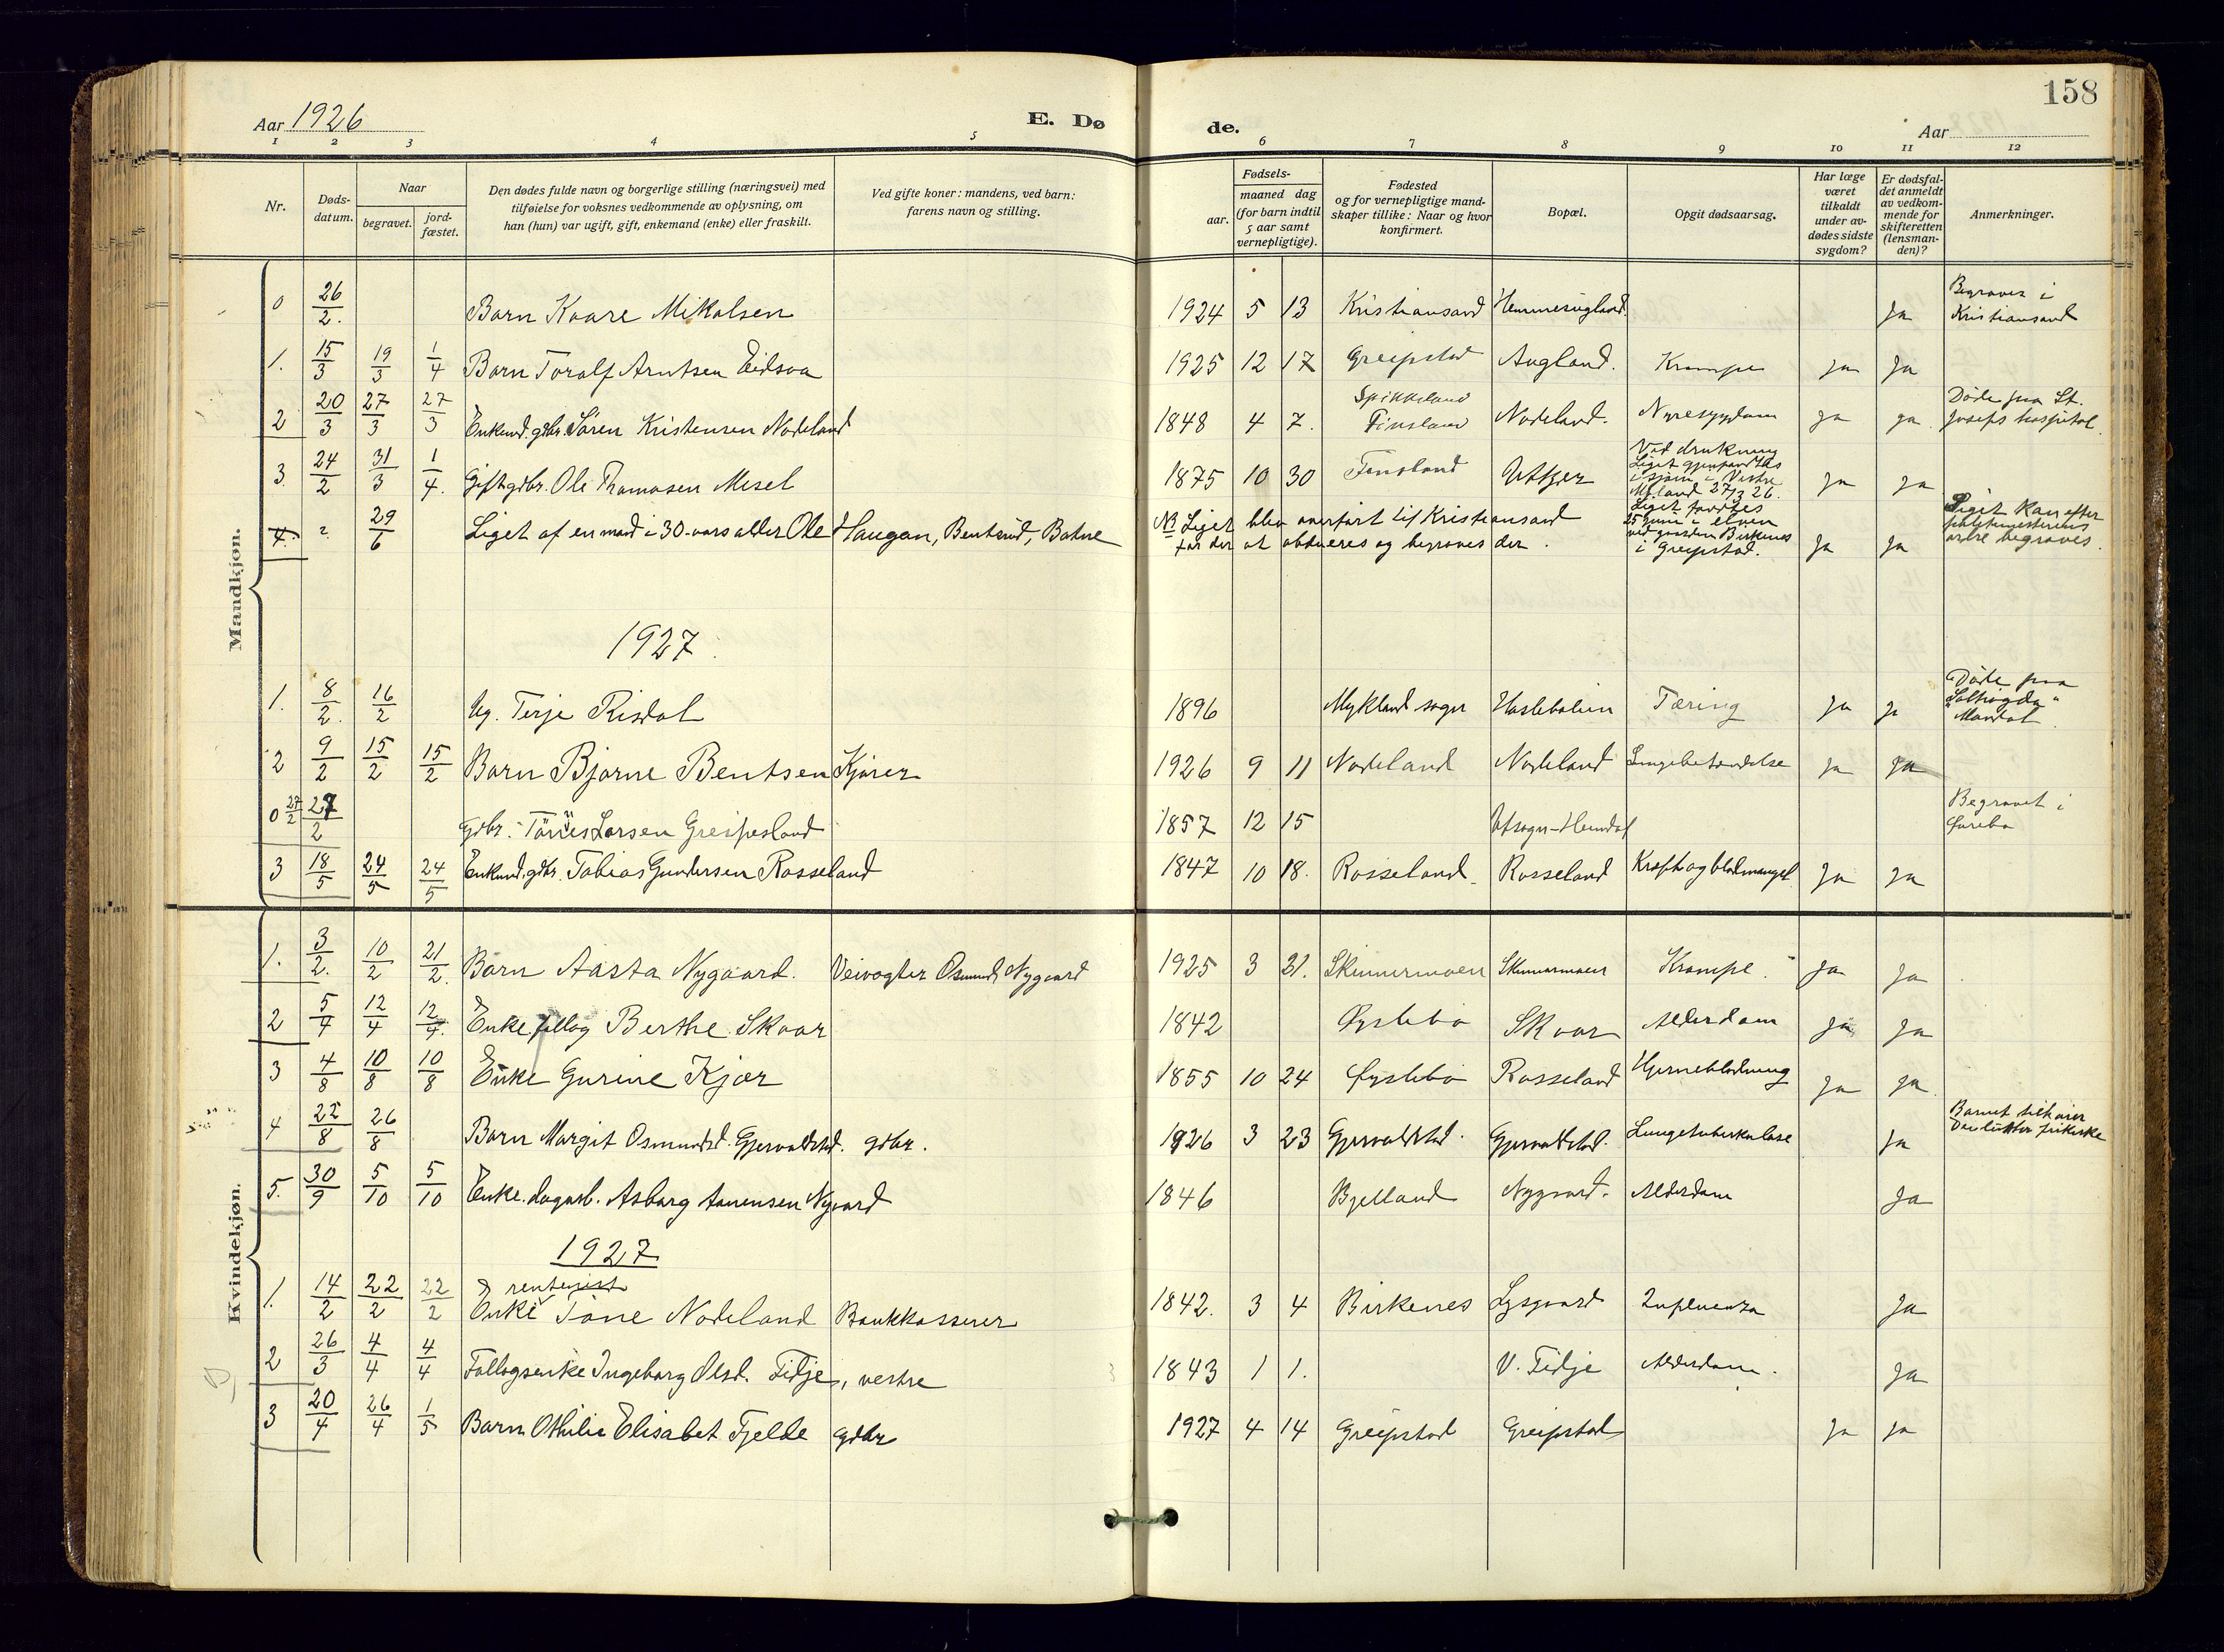 158
Aar 1926 E. Dø de. Aar
1 2 3 4 5 6 7 8 9 10 11 12
Nr.
Døds-
datum.
Naar
begravet.
jord-
fæstet.
Den dødes fulde navn og borgerlige stilling (næringsvei) med
tilføielse for voksnes vedkommende av oplysning, om
han (hun) var ugift, gift, enkemand (enke) eller fraskilt.
Ved gifte koner: mandens, ved barn:
farens navn og stilling.
Fødsels-
aar.
maaned dag
(for barn indtil
5 aar samt
vernepligtige).
Fødested
og for vernepligtige mand-
skaper tillike: Naar og hvor
konfirmert.
Bopæl.
Opgit dødsaarsag.
Har læge
været
tilkaldt
under av-
dødes sidste
sygdom?
Er dødsfal-
det anmeldt
av vedkom-
mende for
skifteretten
(lensman-
den)?
Anmerkninger.
Mandkjøn.
0 26/2. Barn Kaare Mikalsen 1924 5 13 Kristiansand Ja Begraves i
Kristiansand
1. 15/3 19/3 1/4 Barn Toralf Arntsen Eidsaa 1925 12 17 Greipstad Augland. Krampe Ja Ja
2 20/3 27/3 27/3 Enkemd. gdbr. Sören Kristensen Nodeland 1848 4 7. Spikkeland
Finsland Nodeland. Nyresygdom Ja Ja Døde paa St.
Josefs hospital.
3. 24/2 31/3 1/4. Gift gdbr. Ole Thomasen Mesel 1875 10 30 Finsland Ved drukning
Liget gjenfandtes
i sjøen i Vestre
27/3 26. Ja Ja
4. ? 29/6 Liget af en mand i 30-aars alder Ole Haugan, Bentsrud, NB Liget blev overført til Kristiansand
for der at obdueres og begraves der. Liget fandtes
25 juni i elven
ved gaarden Birkenes
i Greipstad. Ja Ja Liget kan efter
ordre begraves.
1927.
1. 8/2. 16/2 Ug. Terje Risdal 1896 Mykland sogn Tæring Ja Ja Døde paa
"Solhøgda"
Mandal
2 9/2 15/2 15/2 Barn Bjarne Bentsen Kjører 1926 9 11 Nodeland Nodeland Lungebetændelse Ja Ja
0 27/2 27/2 Gdbr. Tönnes Larsen Greipesland 1857 12 15 Begravet i
3 18/5 24/5 24/5 Enkemd. gdbr. Tobias Gundersen Rosseland 1847 10 18. Rosseland. Rosseland Kræft og blodmangel Ja Ja
Kvindekjøn.
1. 3/2. 10/2 21/2. Barn Aasta Nygaard. Veivogter Osmund Nygaard 1925 3 21. Skinnermoen Skinnarmoen Krampe. Ja Ja
2 5/4 12/4 12/4. Enke fattig Berthe Skaar 1842 Øyslebø Skaar Alderdom Ja Ja
3 4/8 10/8 10/8 Enke Gurine Kjær 1855 10 24 Øyslebø Rosseland Hjerneblødning Ja Ja
4 22/8 26/8 Barn Margit Osmundsd. Gjervoldstad. gdbr. 1926 3 23 Gjervoldstad. Gjervoldstad. Lungetuberkulose Ja Barnet tilhører
Den lutter frikirke
5. 30/9 5/10 5/10 Enke. Asborg Nygaard 1846 Bjelland Nygaard. Alderdom Ja
1927
1. 14/2 22/2 22/2 rentenist
Enke Tone Nodeland Bankkasserer 1842. 3 4 Birkenes Lysgaard Influenza Ja
2 26/3 4/4 4/4 Fattigsenke Ingeborg Olsd. Tidje, vestre 1843 1 1. V. Tidje Alderdom. Ja
3 20/4 26/4 1/5 Barn Othilie Elisabet Fjelde gdbr 1927 4 14 Greipstad Greipstad Ja Ja